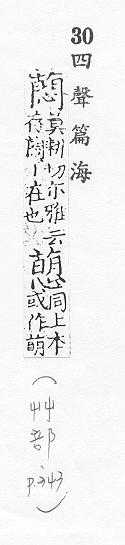 30 四聲篇海
蕄
莫耕切尔雅云
在也
同上本
或作萌
(艸部 p.343)